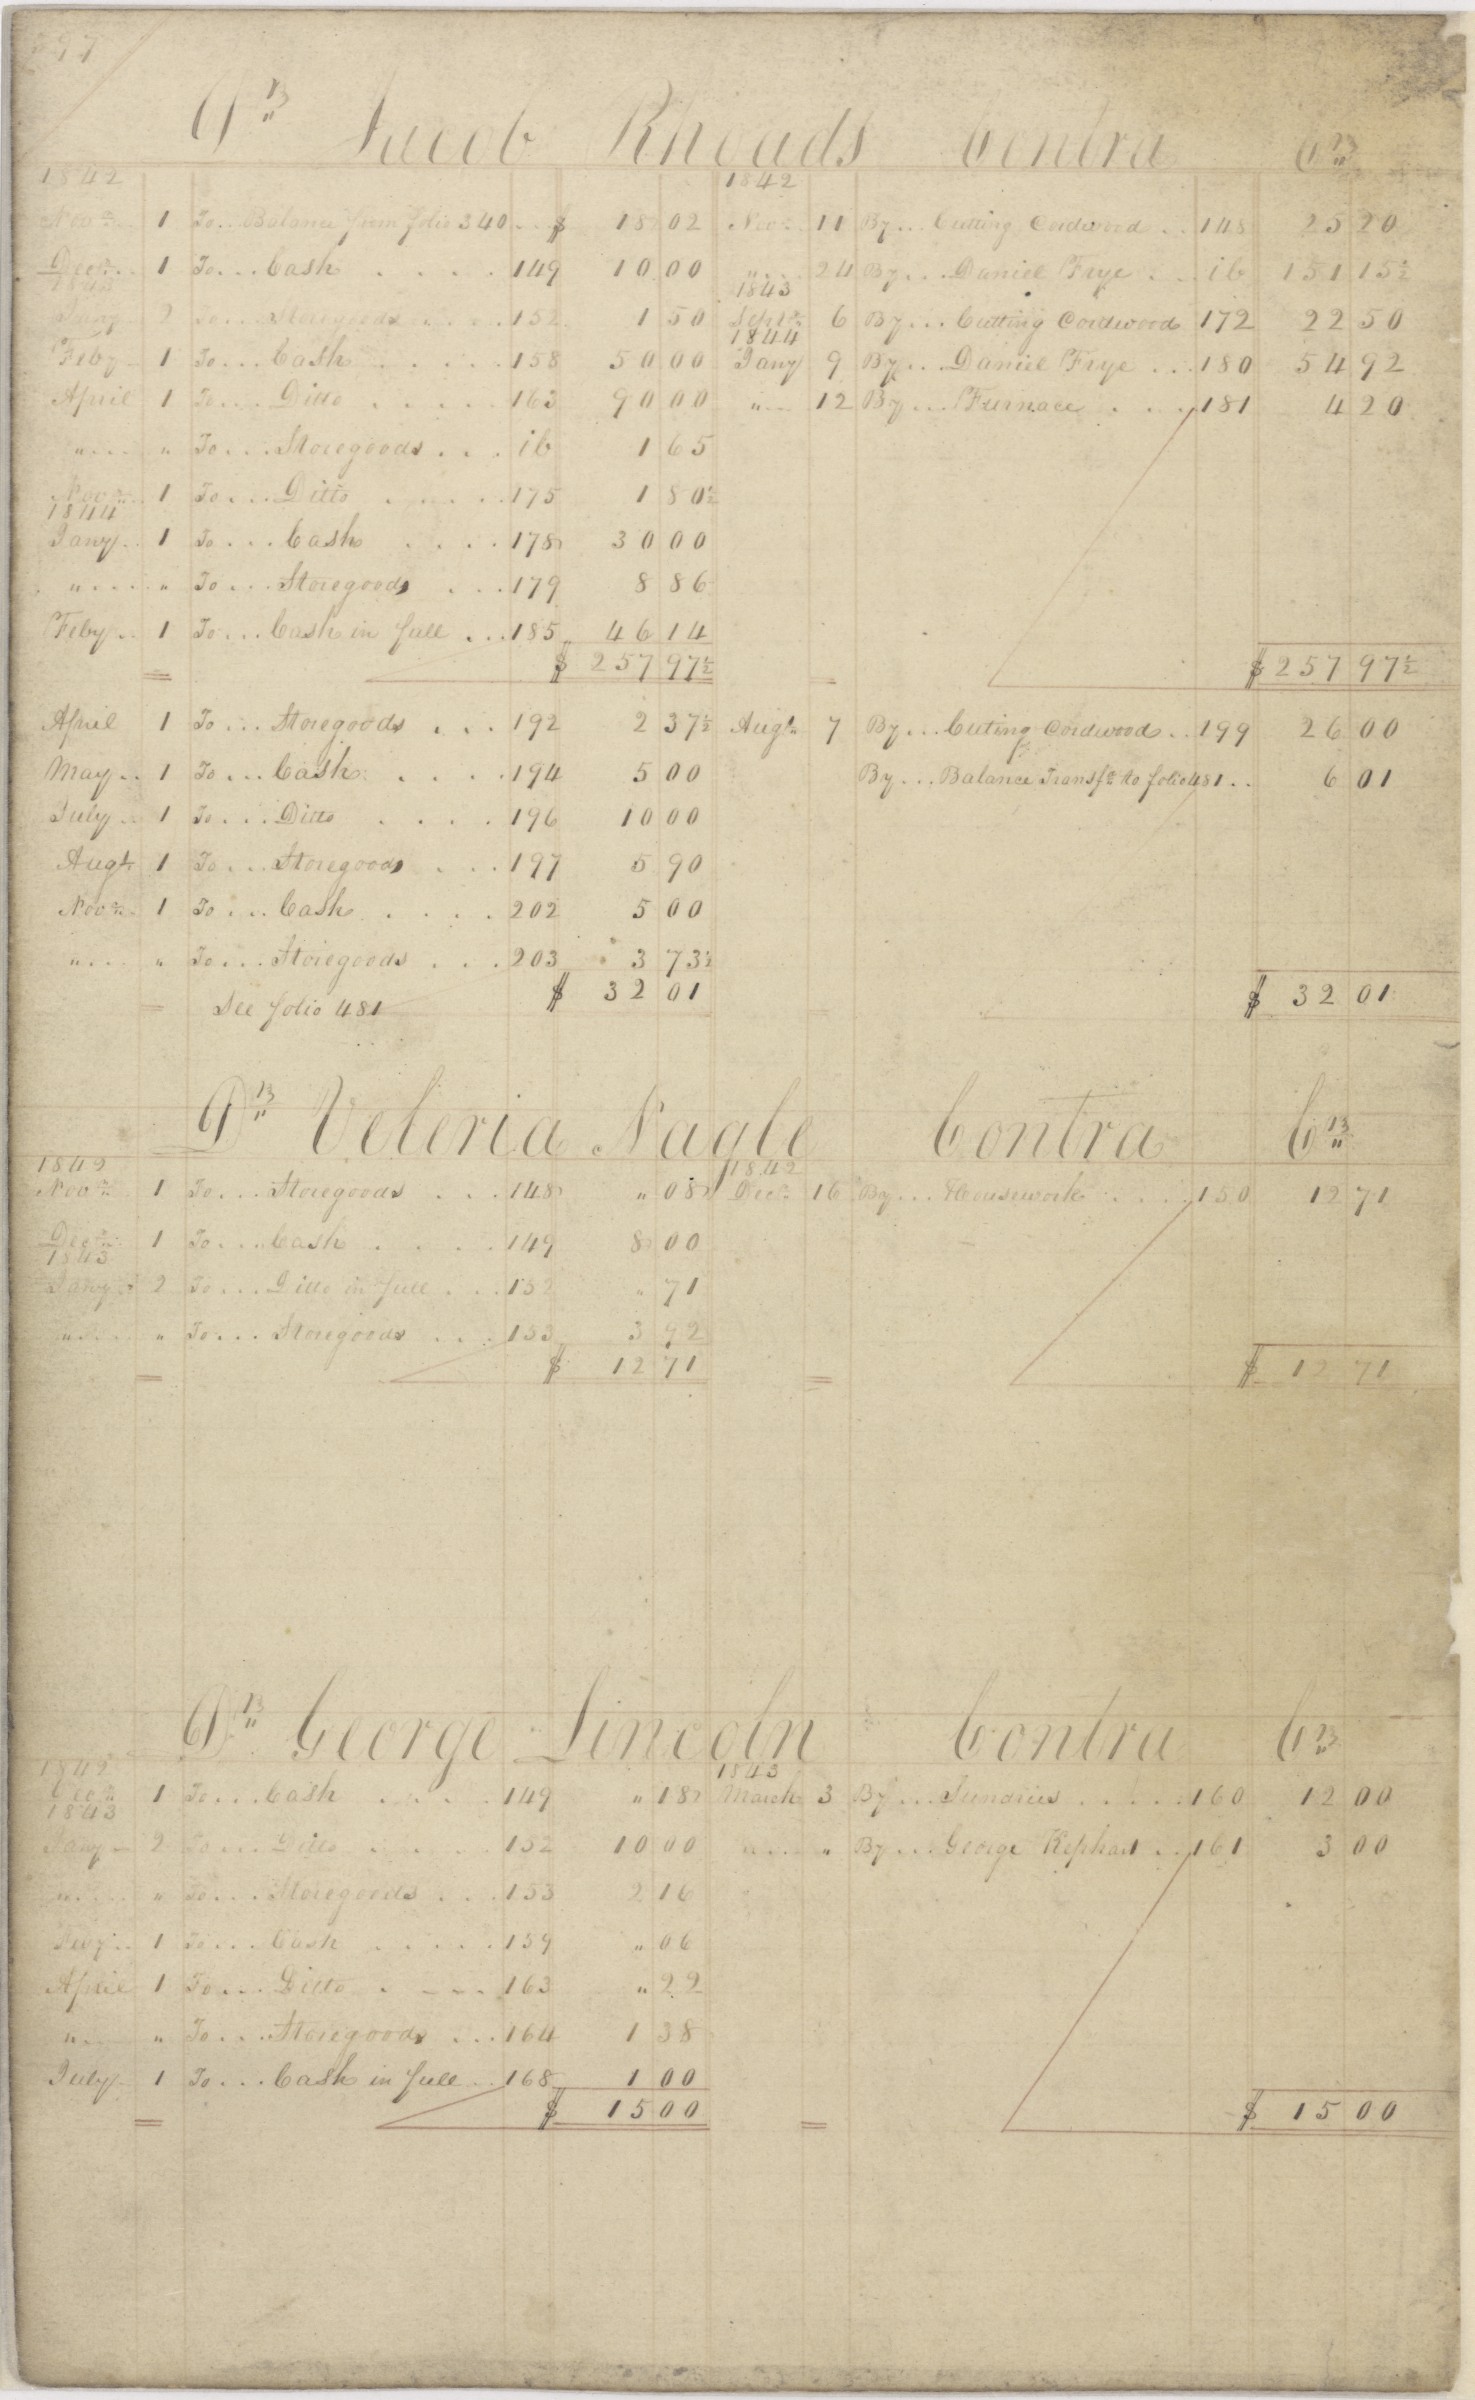 97
Dr Jacob Rhoads Contra Cr
1842 1842
Nov 1 To... Balance from folio 340 .. $ 18 02 Nov 11 By... Cutting Cordwood .. 148 25 20
Dec 1 To... Cash . . . . . 149 10 00 " ... 24 By... Daniel Frye . . ib 151 15½
1843 1843
Jany 2 To... Storegoods . . . . 152 1 50 Sept 6 By... Cutting Cordwood 172 22 50
1844
Feby 1 To... Cash . . . . . 158 50 00 Jany 9 By... Daniel Frye ... 180 54 92
April 1 To... Ditto . . . . . 163 90 00 " ... 12 By... Furnace . . . 181 4 20
" .... " To... Storegoods . . . ib 1 65
Nov 1 To... Ditto . . . . . 175 1 80½
1844
Jany .. 1 To... Cash . . . . 178 30 00
" .... " To... Storegoods . . . 179 8 86
Feby .. 1 To... Cash in full ... 185 46 14
$ 257 97½ $ 257 97½
April 1 To... Storegoods . . . 192 2 37½ Augt 7 By... Cuting Cordwood .. 199 26 00
May .. 1 To... Cash . . . . . 194 5 00 By... Balance Transfd to folio 481 .. 6 01
July .. 1 To... Ditto . . . . 196 10 00
Augt 1 To... Storegoods . . . 197 5 90
Nov 1 To... Cash . . . . 202 5 00
" ... " To... Storegoods . . . 203 3 73½
See folio 481 $ 32 01 $ 32 01
Dr Veleria Nagle Contra Cr
1842 1842
Nov 1 To... Storegoods . . . 148 " 08 Dec 16 By... Housework . . . . 150 12 71
Dec 1 To... Cash . . . . 149 8 00
1843
Jany 2 To... Ditto in full . . . 152 " 71
" .... " To... Storegoods . . . 153 3 92
$ 12 71 $ 12 71
Dr George Lincoln Contra Cr
1842 1843
Dec 1 To... Cash . . . . . 149 " 18 March 3 By... Sundries . . . . . 160 12 00
1843
Jany 2 To... Ditto . . . . . 152 10 00 " .... " By... George Kephart .. 161 3 00
" .... " To... Storegoods . . . 153 2 16
Feby .. 1 To... Cash . . . . . 159 " 06
April 1 To... Ditto . . . . 163 " 22
" .... " To... Storegoods ... 164 1 38
July 1 To... Cash in full .. 168 1 00
$ 15 00 $ 15 00